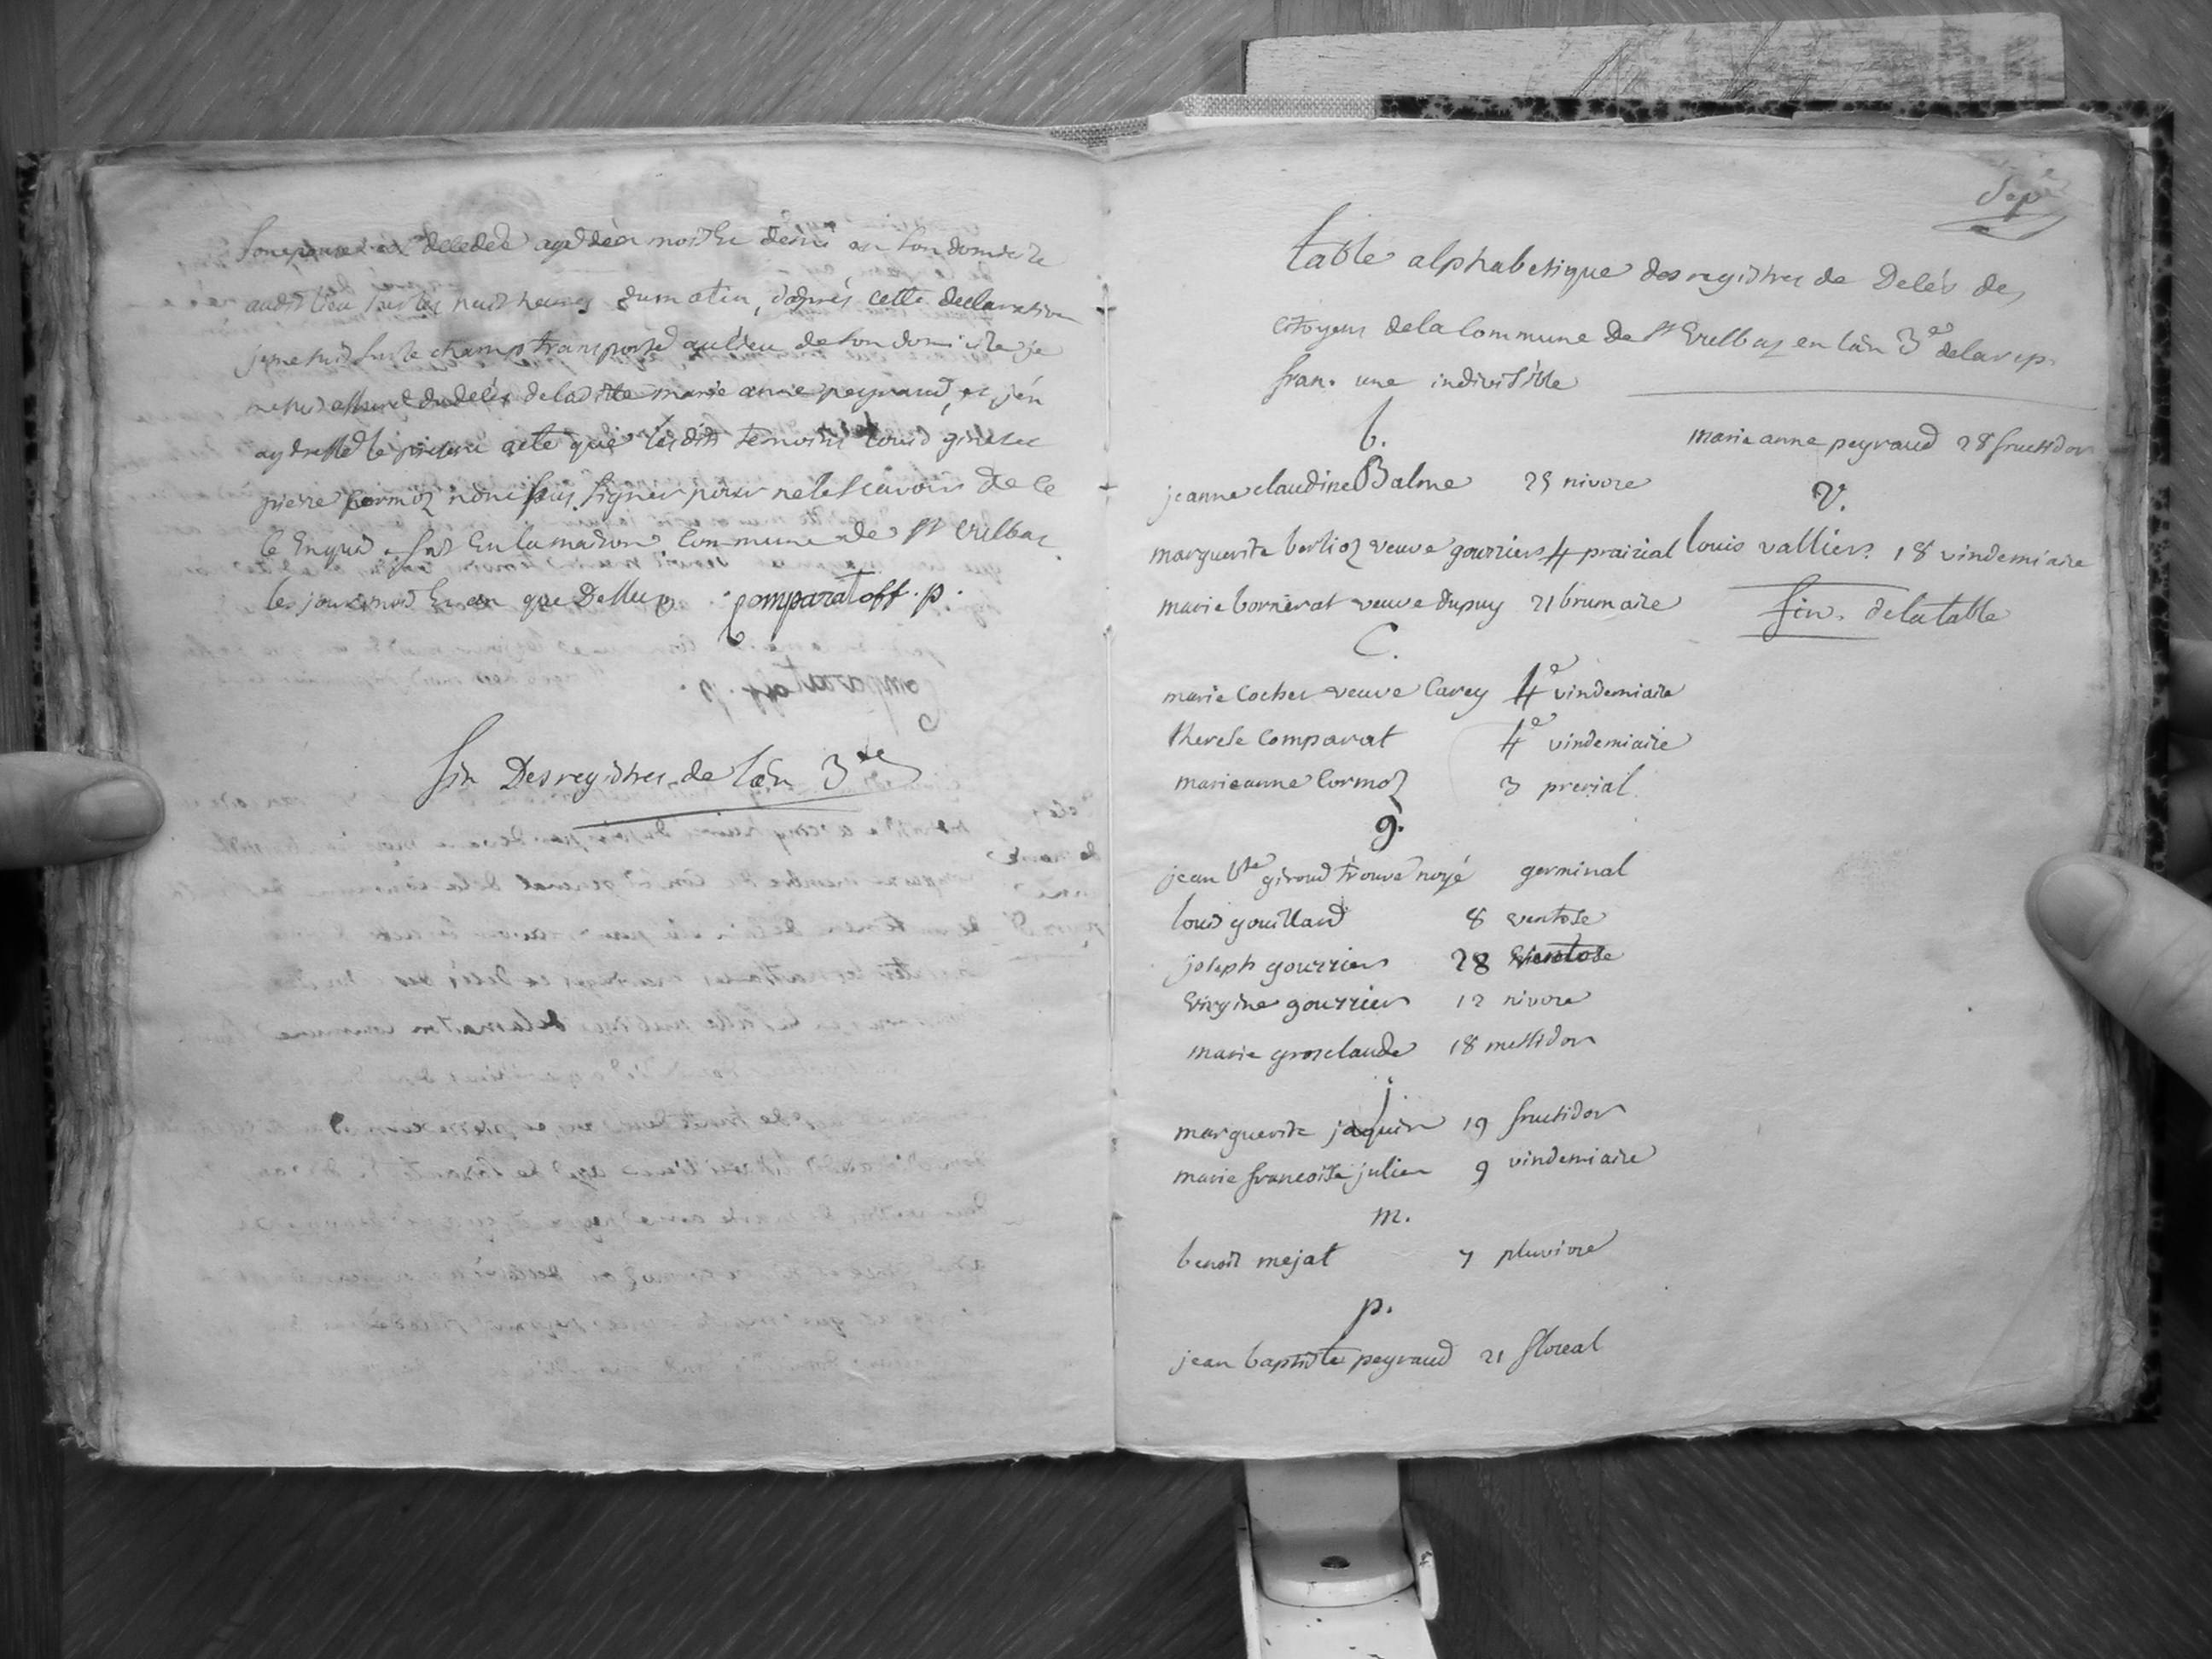 son epouse est decedée agé déen mois et demi en son domicile
audit lieu sur les huit heures du matin, daprés cette declaration
je me suis sur le champ transporté au lieu de son domicile je
me suis assuré du decés de laditte marie anne peyraud, et jén
ay dressé le present acte que lesdits temoins louis
pierre Cormoz nont sus signer pour ne le scavoir de ce
le Enquis. fait En la maison Commune de St Vulbas
les jour mois Et an que Dessus. Comparat off. p.
fin Des registres de lán 3me
Dep
table alphabetique des registres de Decés des
Citoyens de la Commune de St Vulbas en lán 3e de la rep.
fran. une indivisible
b.
jeanne claudine Balme 25 nivose
marguerite berlioz veuve gourrier 4 prairial
marie bornerat veuve dupuy 21 brumaire
C.
marie Cocher veuve Carey 4e vindemiaire
therese Comparat 4e vindemiaire
marieanne Cormoz 3 prerial
g.
jean Bte giroud trouvé noyé germinal
louis gouilland 8 ventose
joseph gourrier 28 ventose
Virgine gourrier 12 nivose
marie grosclaude 18 messidor
j
marguerite jaquin 19 fructidor
marie francoise julien 9 vindemiaire
m.
benoit mejat 7 pluviose
p.
jean baptiste peyraud 21 floreal
marie anne peyraud 28 fructidor
V.
louis vallier 18 vindemiaire
fin. de la table